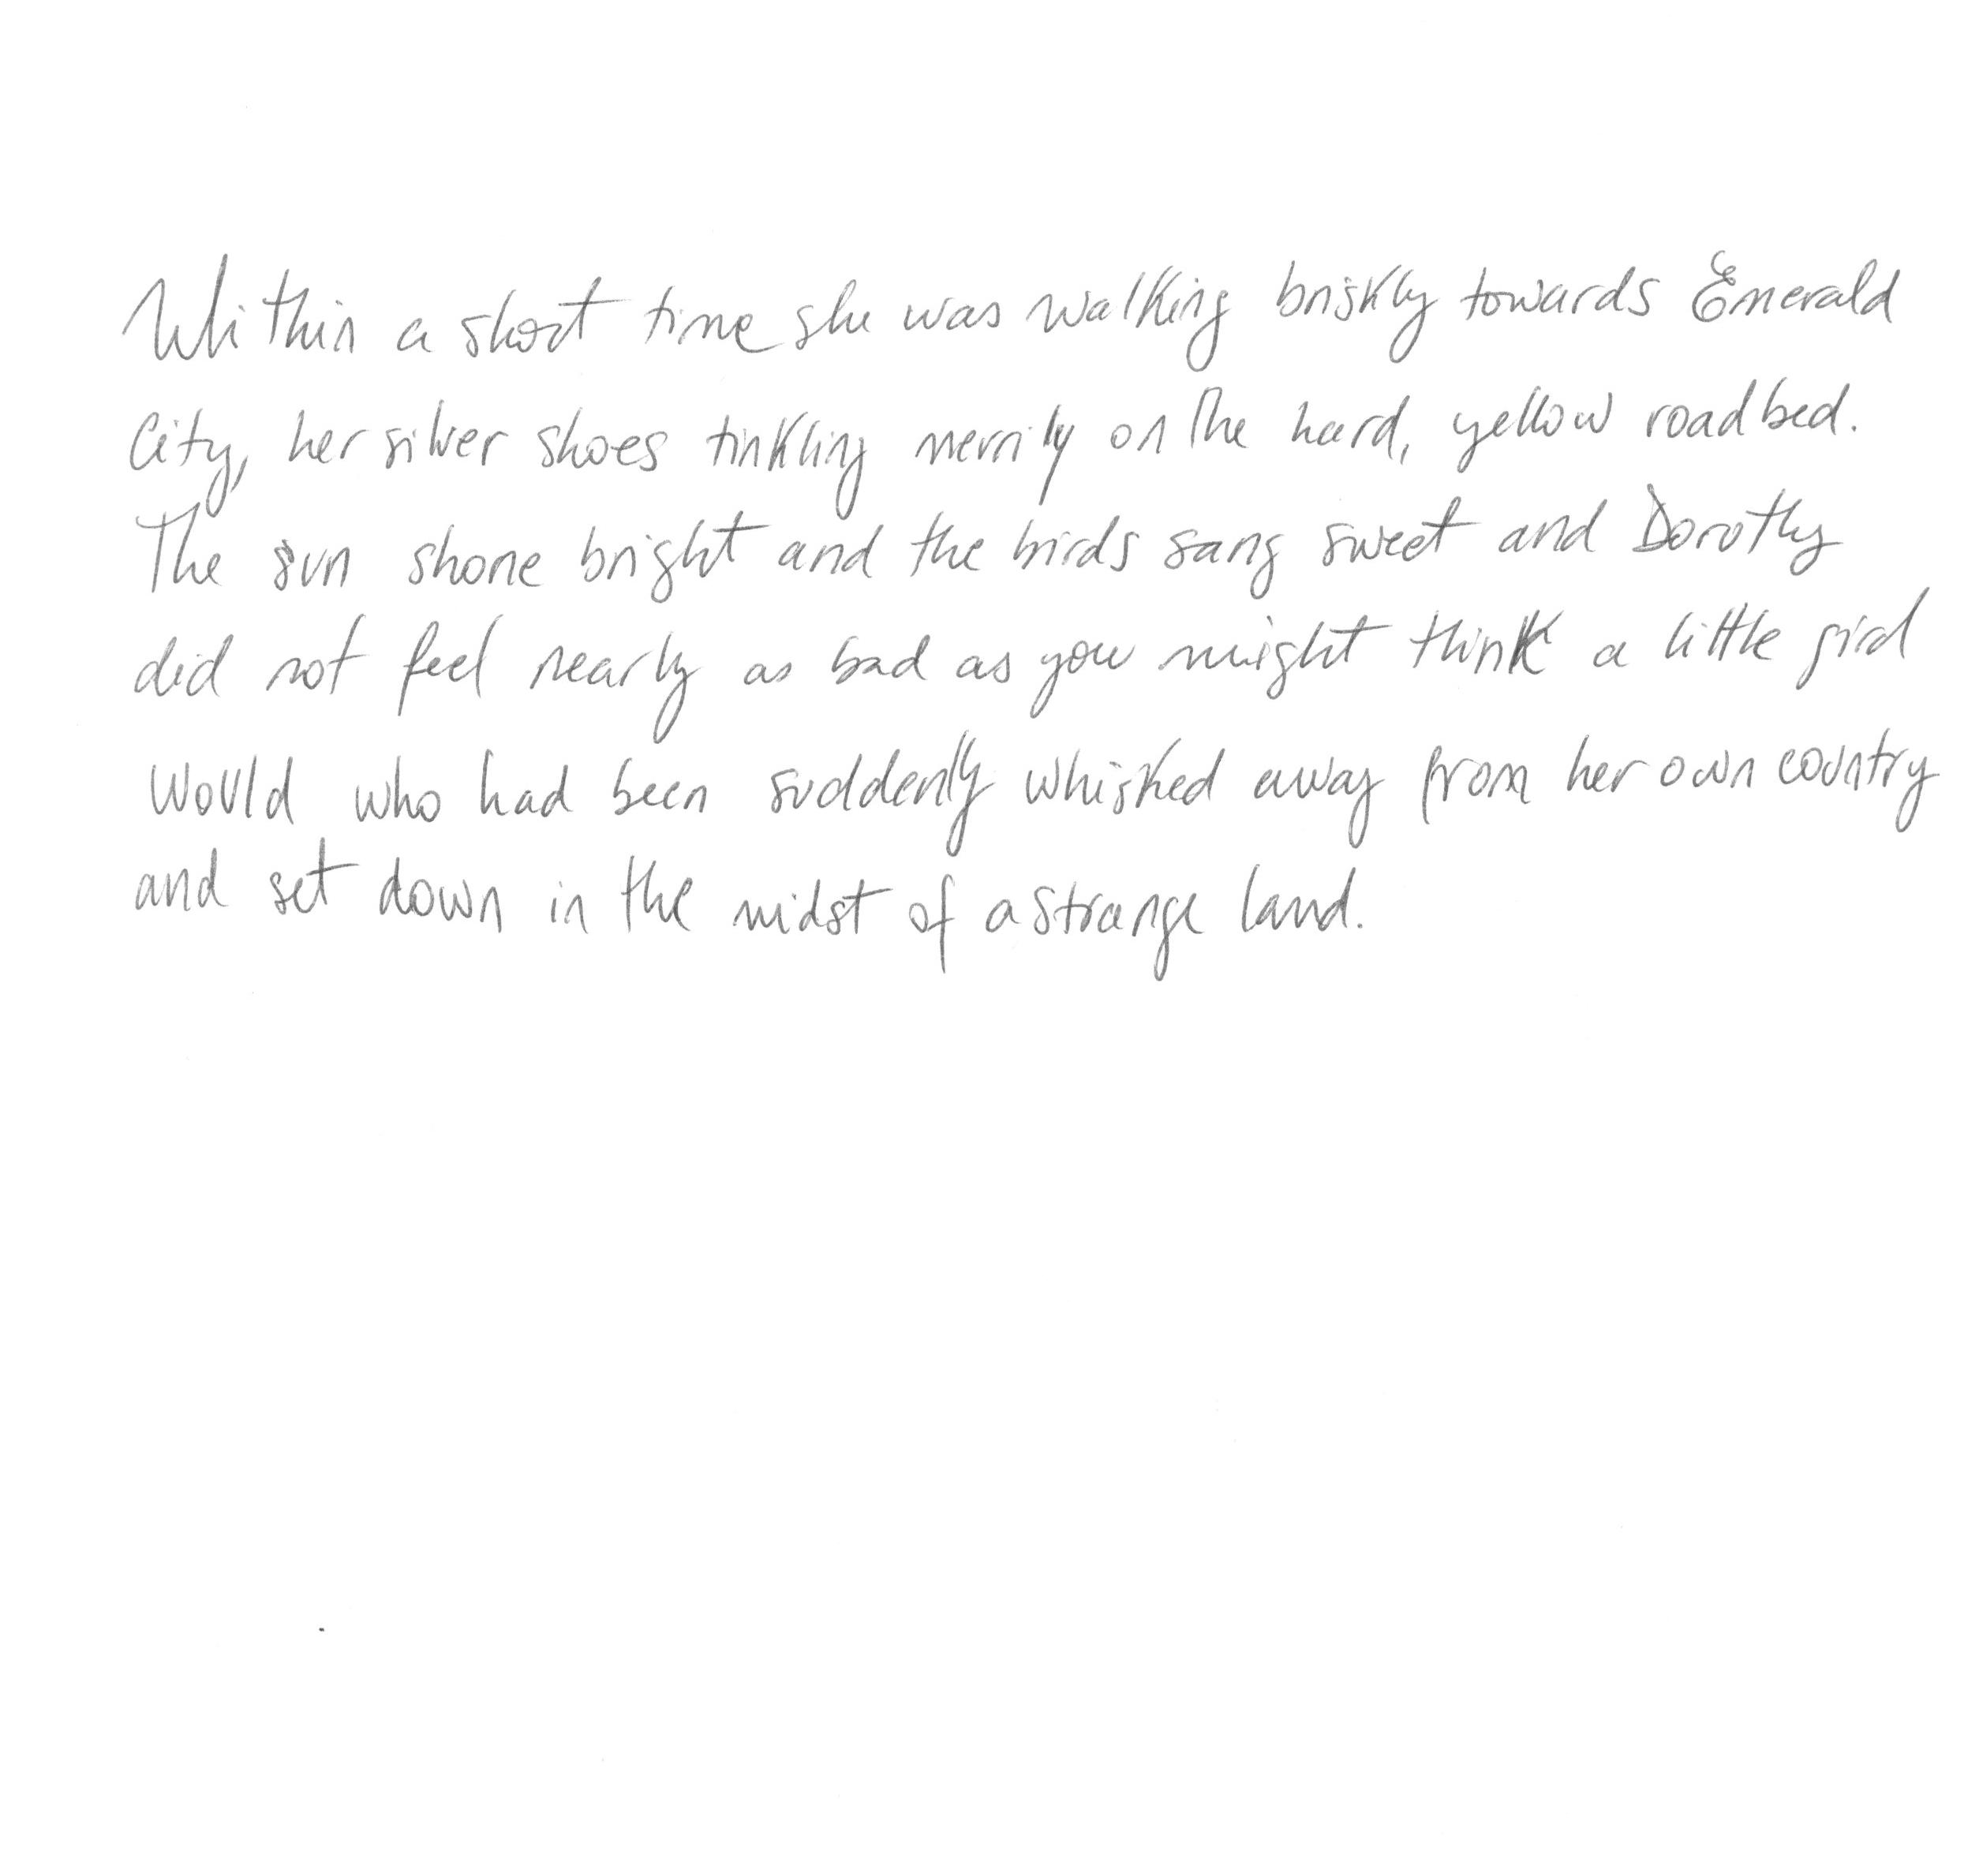 Within a short time she was walking briskly towards Emerald
City, her silver shoes tinkling merrily on the hard, yellow roadbed.
The sun shone bright and the birds sang sweet and Dorothy
did not feel nearly as bad as you might think a little girl
would who had been suddenly whisked away from her own country
and set down in the midst of a strange land.